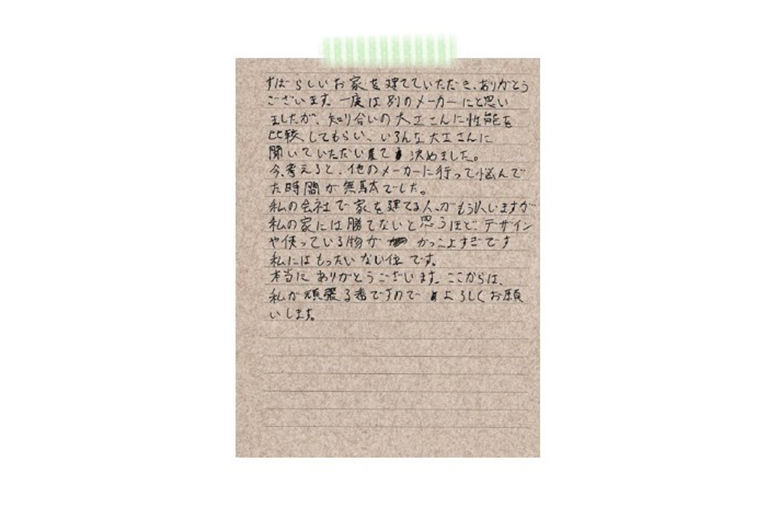 すばらしいお家を建てていただき、ありがとう
ございます。一度は別のメーカーにと思い
ましたが、知り合いの大工さんに性能を
比較してもらい、いろんな大工さんに
聞いていただいて決めました。
今、考えると、他のメーカーに行って悩んで
た時間が無駄でした。
私の会社で家を建てる人がもう1人いますが
私の家には勝てないと思うほど、デザイン
や使っている物がかっこよすぎです
私にはもったいない位です。
本当にありがとうございます。ここからは、
私が頑張る番ですのでよろしくお願
いします。